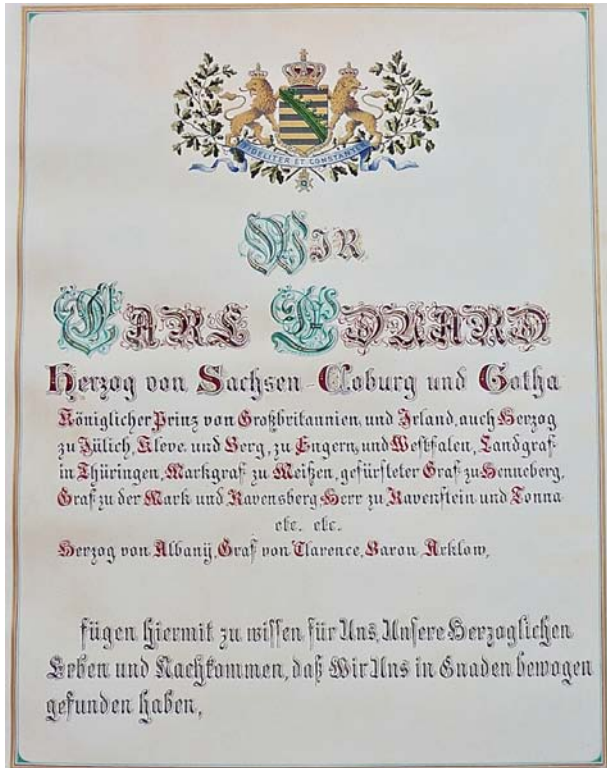 FIDELITER ET CONSTANTER
WIR
CARL EDUARD
Herzog von Sachsen-Coburg und Gotha
Königlicher Prinz von Großbritannien und Irland, auch Herzog
zu Jülich, Kleve und Berg, zu Engern und Westfalen, Landgraf
in Thüringen, Markgraf zu Meißen, gefürsteter Graf zu Henneberg,
Graf zu der Mark und Ravensberg, Herr zu Ravenstein und Tonna
etc. etc.
Herzog von Albany, Graf von Clarence, Baron Arklow,
fügen hiermit zu wissen für Uns, Unsere Herzoglichen
Erben und Nachkommen, daß Wir Uns in Gnaden bewogen
gefunden haben,